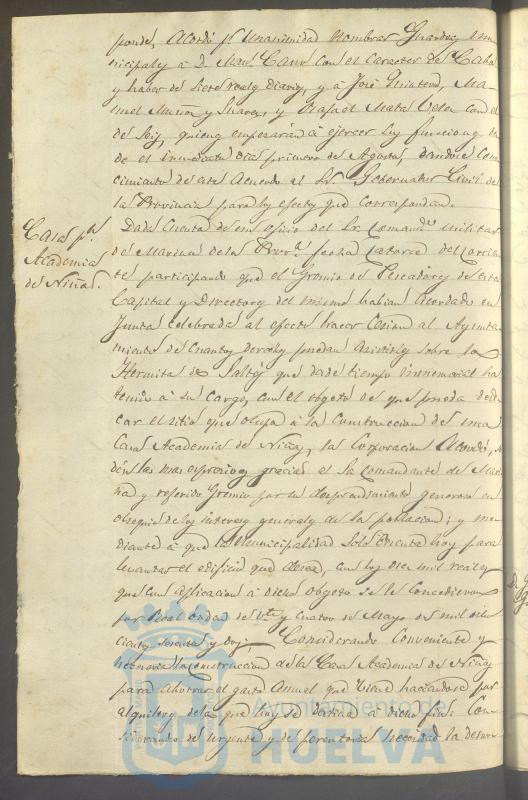 ponde, Acordó pr. Unanimidad Nombrar Guardas mu-
nicipales á D. Manl. Cano con el Caracter de Cabo
y haber de siete reales diarios, y á José Quintero, Ma-
nuel Muñoz y Suarez, y Rafael Mata Velez con el
de Seis, quienes empezarán á ejercer sus funciones des-
de el inmediato Dia primero de Agosto, dandose cono-
cimiento de este Acuerdo al Sr. Gobernador Civil de
la Provincia para los efectos que correspondan.
Casa pa.
Academia
de Niñas.
Dada Cuenta de un oficio del Sr. Comande. Militar
de Marina de la Prova. fecha Catorce del corrien-
te participando que el Gremio de Pescadores de esta
Capital y Directores del mismo habian acordado en
Junta celebrada al efecto hacer Cesion al Ayunta-
miento de cuantos derechos puedan asistirles sobre la
Hermita de Saltés que desde tiempo inmemorial ha
tenido á su cargo, con el obgeto de que pueda dedi-
car el sitio que ocupa á la Construccion de una
Casa Academia de Niñas, la Corporacion Acordó, se
dén las mas espresivas gracias al Sr. Comandante de Mari-
na y referido Gremio por su desprendimiento generoso en
obsequio de los intereses generales de la poblacion; y me-
diante á que la Municipalidad Solo Cuenta hoy para
levantar el edificio que desea, con los diez mil reales
que con aplicacion á dicho obgeto se le Concedieron
por Real orden de Vte. y cuatro de Mayo de mil ocho
cientos sesenta y dos; Considerando Conveniente y
necesaria la construccion de la Casa Academia de Niñas
para ahorrar el gasto Anual que viene haciendose por
alquileres de la que hoy se destina á dicho fin: Con-
siderando de urgente y de perentoria necesidad la
Ayuntamiento de
HUELVA